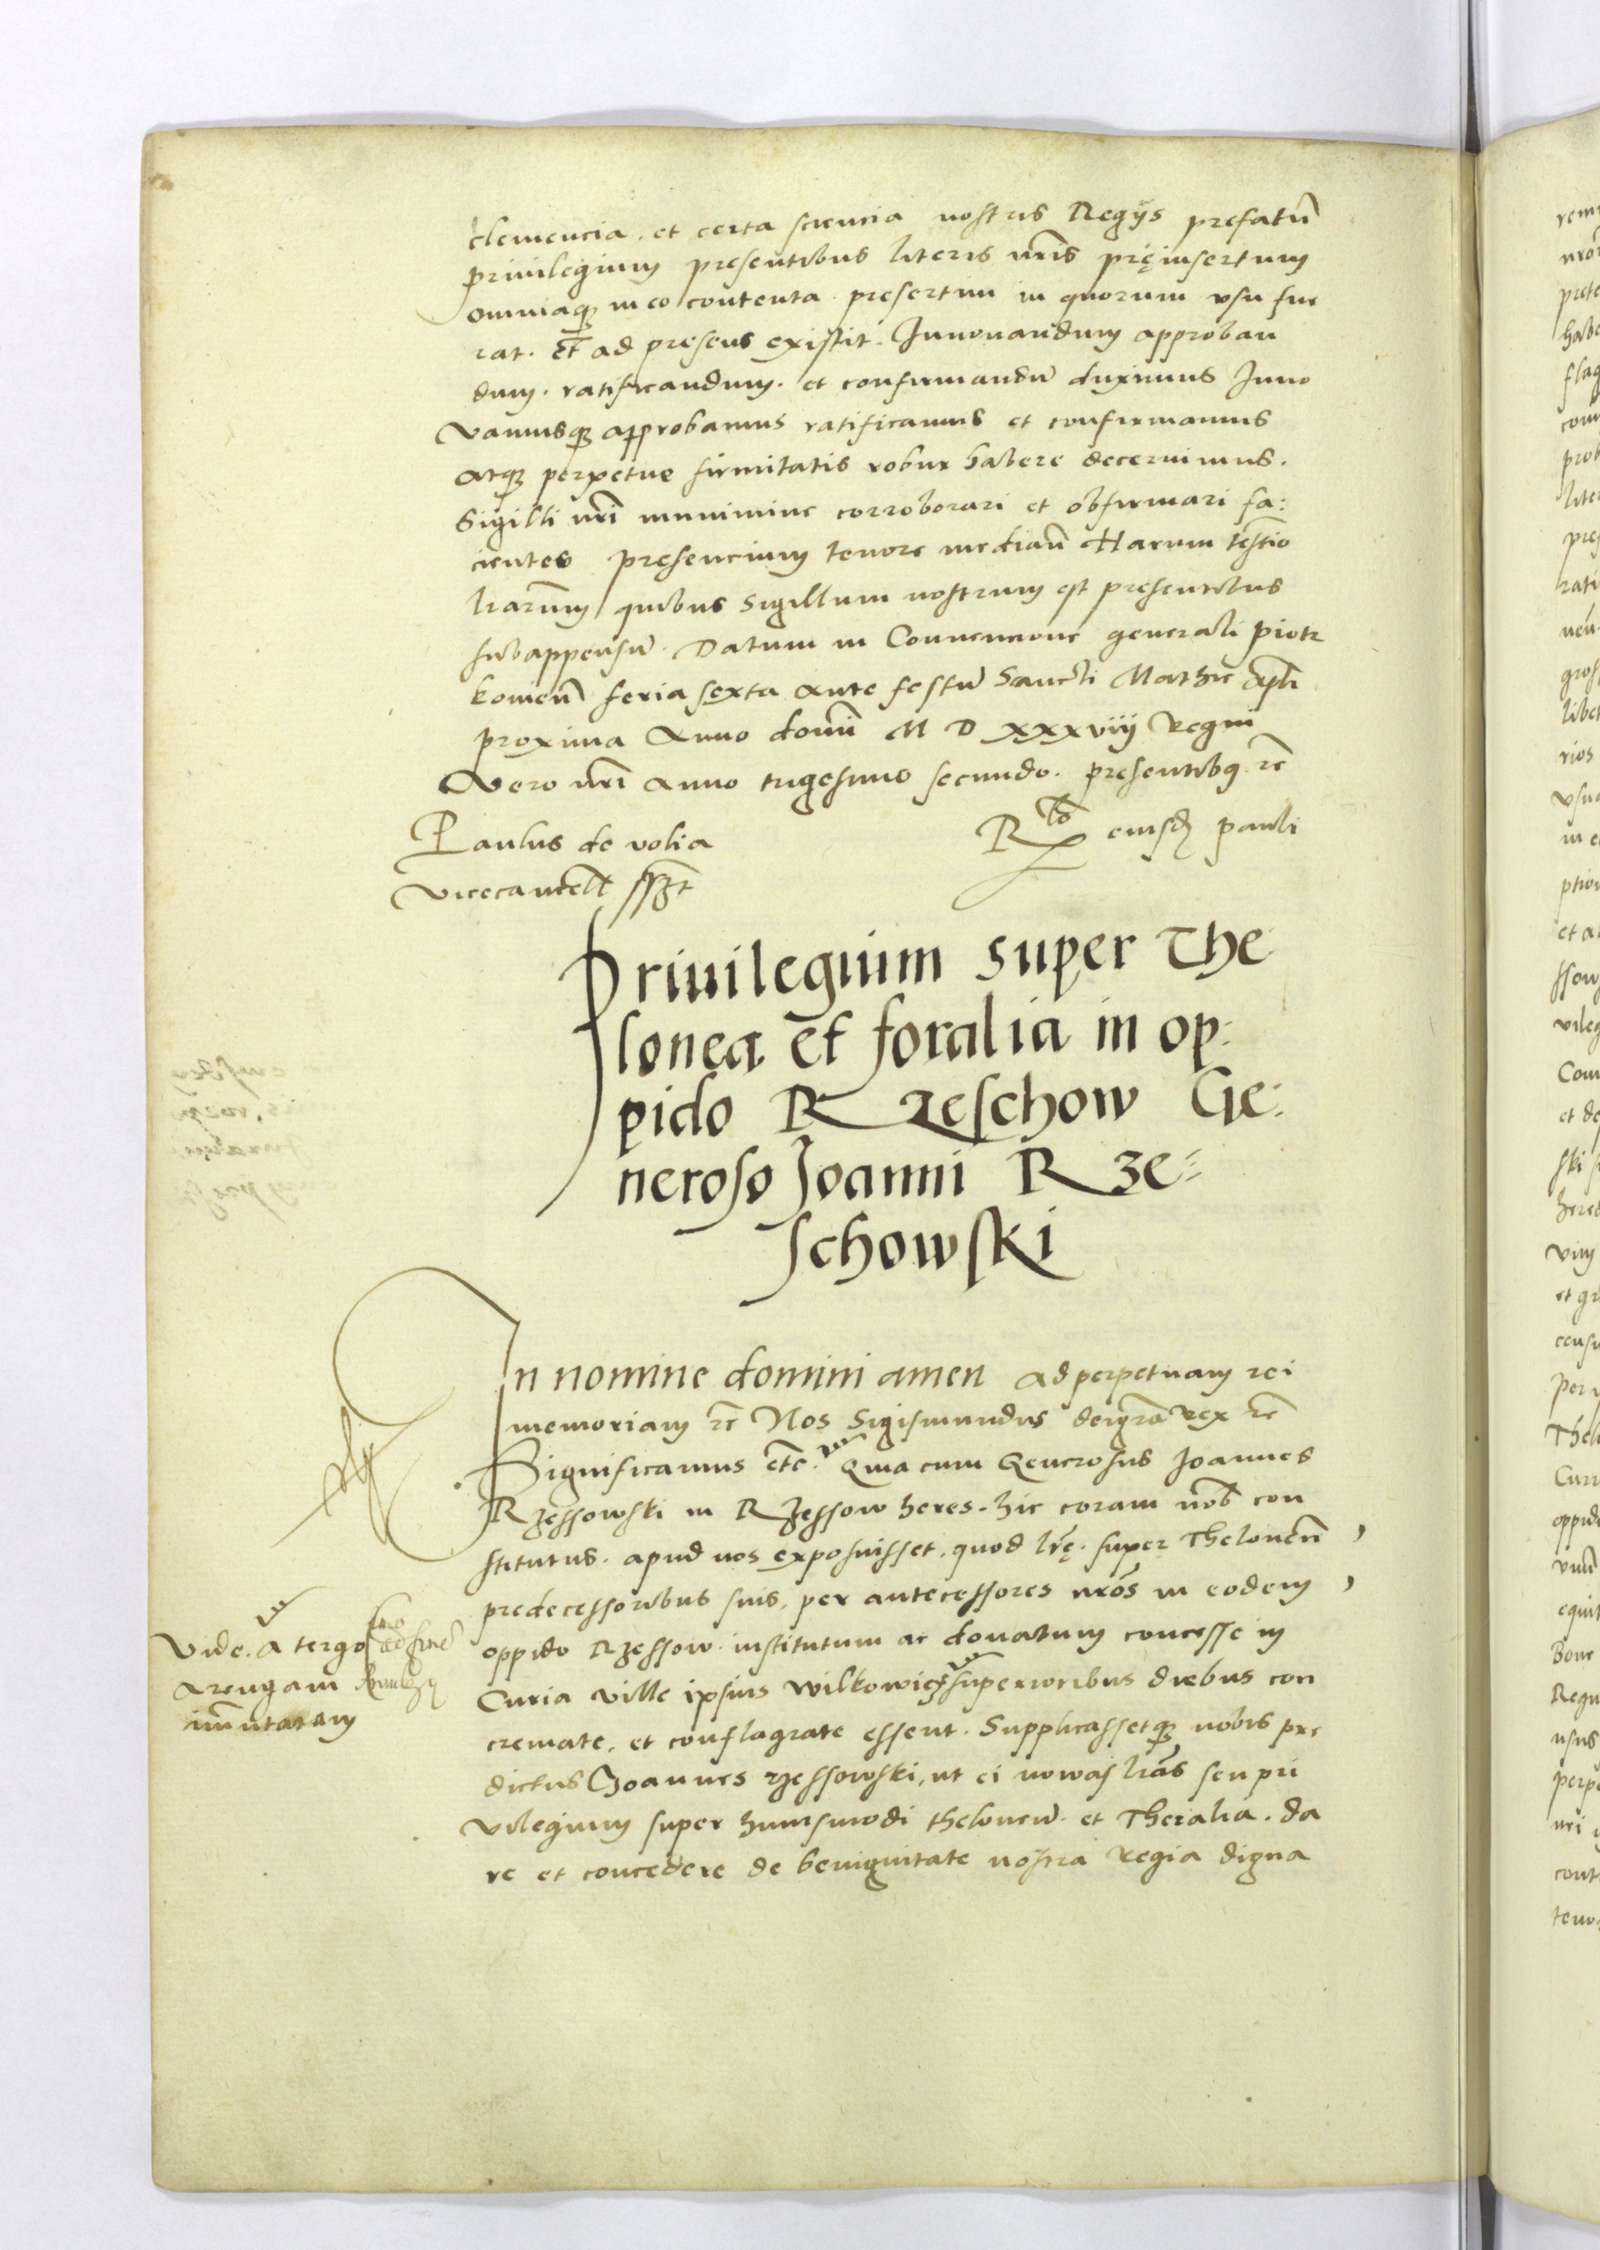 clemencia. et certa sciencia nostris Regijs prefatũ
privilegium presentibus literis nr̃is pręinsertum
omniaqȝ in eo contenta presertim in quorum vsu fue
rat. Et ad presens existit. Innouandum approban
dum. ratificandum. et confirmandũ duximus Inno
vamusqȝ approbamus ratificamus et confirmamus
atqȝ perpetue firmitatis robur habere decernimus.
Sigilli nr̃i munimine corroborari et obfirmari fa:
cientes presencium tenore mediañ Harum testio
lrarum quibus sigillum nostrum est presentibus
subappensũ. Datum in Conuencione generali piotr
kouieñ feria sexta ante festũ Sancti Mathie apl̃i
proxima Anno domĩ M D XXXviij Regni
Vero nr̃i anno trigesimo secundo. presentibꝰ rc̃
Paulus de volia
vicecancell̃ sszt
Rlõ eiusd pauli
Priuilegium super The
lonea et foralia in op:
pido Rzeschow Ge:
neroso Joanni Rze:
schowski
In nomine domini amen ad perpetuam rei
memoriam rc̃ Nos Sigismundus dei gr̃a rex rc̃
Significamus etc̃. Quia cum Generosus Joannes
Rzessowski in Rzessow heres. hic coram nob̃ con
stitutus. apud nos exposuisset. quod lrẽ. super Theloneũ
predecessoribus suis. per antecessores nr̃os in eodem
oppido Rzessow. institutum ac donatum concesse in
Curia ville ipsius Wilkowicz superioribus diebus con
cremate. et conflagrate essent. Supplicassetqȝ nobis pre
dictus Joannes rzessowski, ut ei novas lr̃as seu pri
vilegium super huiusmodi theloneũ. et Theralia. da
re et concedere de benignitate nostra regia digna
Vide. a tergo
ad finẽ
arengam
im̃utatam